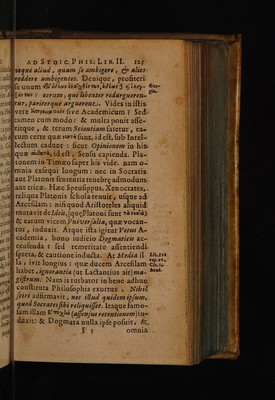 AD STOIC. PHIL. LIB. II. 125
neque aliud, quam se ambigere, & alios
reddere ambigentes. Denique, profiteri
se unum
eorum, qui libenter redarguerentur,
tur, pariterque arguerent. Vides in istis
vere sive Academicum? Sed
tamen cum modo: & multa ponit asseritque,
ritque, & rerum Scientiam fatetur, earum
rum certe quæ sunt, id est, sub Intellectum
lectum cadunt: sicut Opinionem in his
quæ id est, Sensu capienda. Platonem
tonem in Timæo sapit his vide. nam omnia
omnia exsequi longum: nec in Socratis
aut Platonis sententia tenebræ admodum
aut tricæ. Hæc Speusippus, Xenocrates,
reliqua Platonis schola tenuit, usque ad
Arcesilam: nisi quod Aristoteles aliquid
mutavit de Ideis, quæ Platoni sunt
& earum vicem Universalia, quæ vocantur,
tur, induxit. Atque ista igitur Vetus Academia,
cademia, bono iudicio Dogmaticis accensenda:
censenda: sed temeritate assentiendi
spreta, & cautione inducta. At Media illa,
la, ivit longius: quæ ducem Arcesilam
habet, ignorantiæ (ut Lactantius ait) magistrum.
gistrum. Nam is turbator in bene adhuc
constituta Philosophia exortus, Nihil
sciri adfirmavit, nec illud quidem ipsum,
quod Socrates sibi reliquisset. Itaque famosam
sam illam (assensus retentionem) induxit:
duxit: & Dogmata nulla ipse posuit, &
F 3 omnia